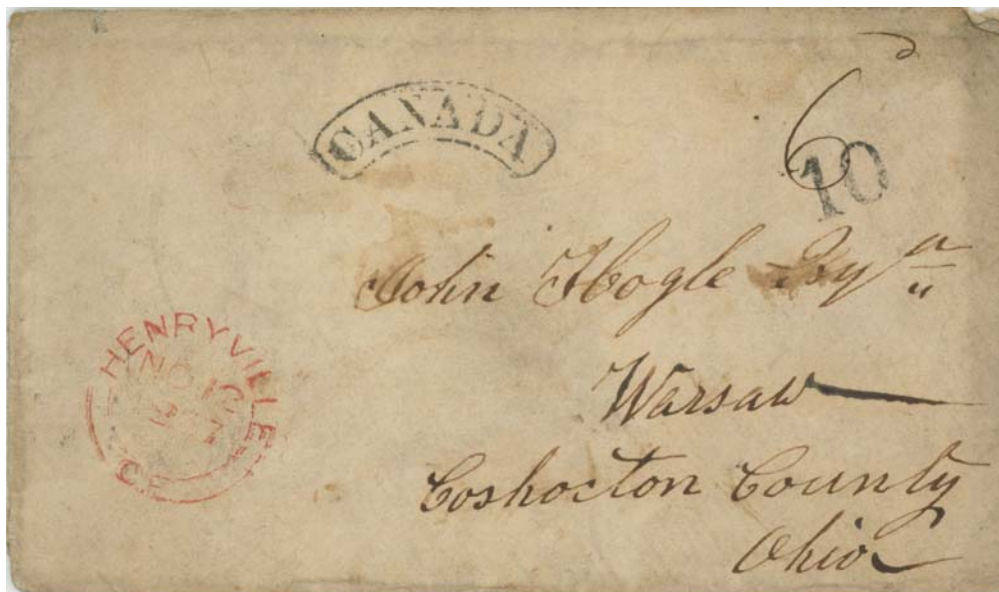 CANADA
6
10
John Hogle Esqr
Warsaw
Coshocton County
Ohio
HENRYVILLE
NO 10